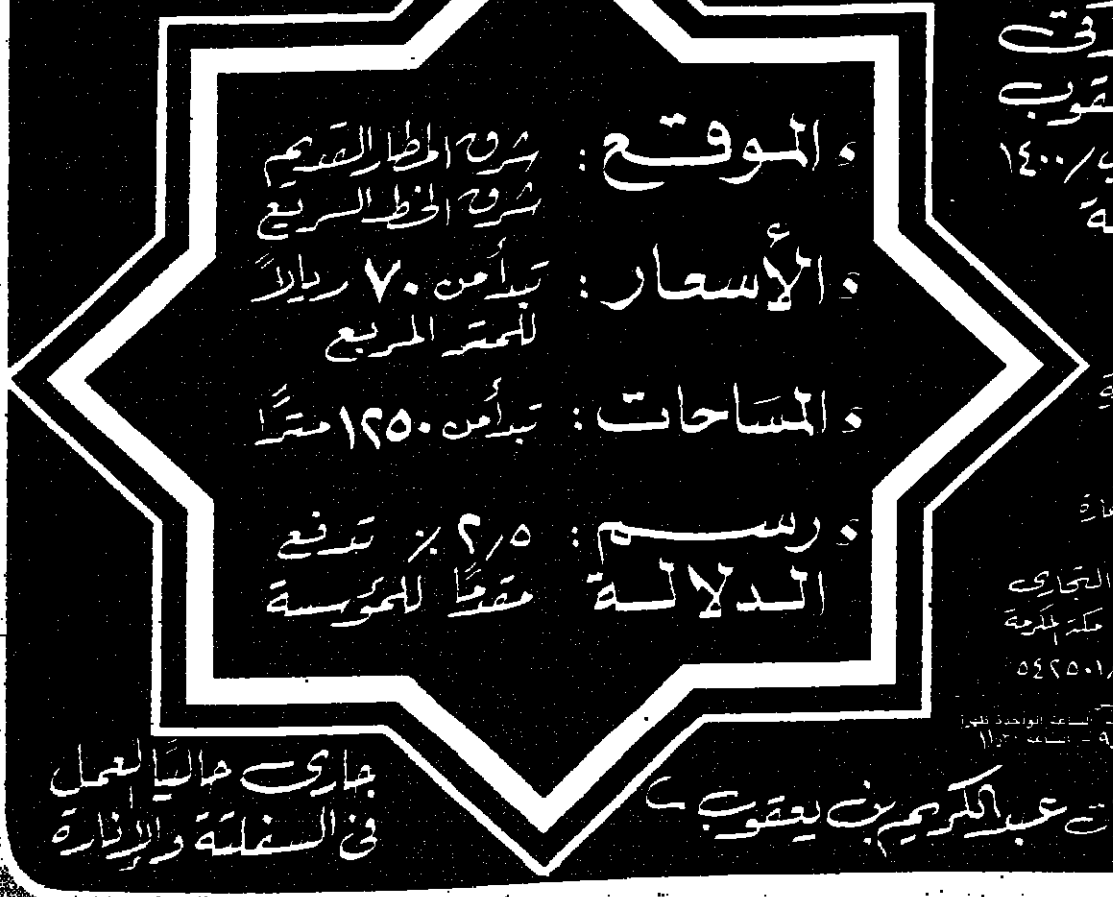 • الموقع : شرق المطار القديم
شرق الخط السريع
• الأسعار : تبدأ من ٧٠ ريالاً
للمتر المربع
• المساحات : تبدأ من ١٢٥٠ مترًا
• رسم : ٢٫٥ ٪ تدفع
الدلالة مقدمًا للمؤسسة
قوب
/١٤٠٠
التجاري
مكة المكرمة
٥٤٢٥٠١/
الساعة الواحدة ظهرا
جاري حاليا العمل
في السفلتة والإنارة
عبد الكريم بن يعقوب